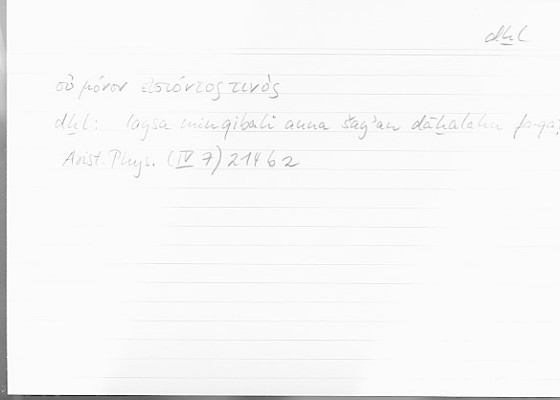 dḫl
οὐ μόνον εἰσιόντος τινὸς
dḫl: laysa min qibali anna šayʾan dāḫalahu faqa
Arist. Phys. (IV 7) 214 b 2